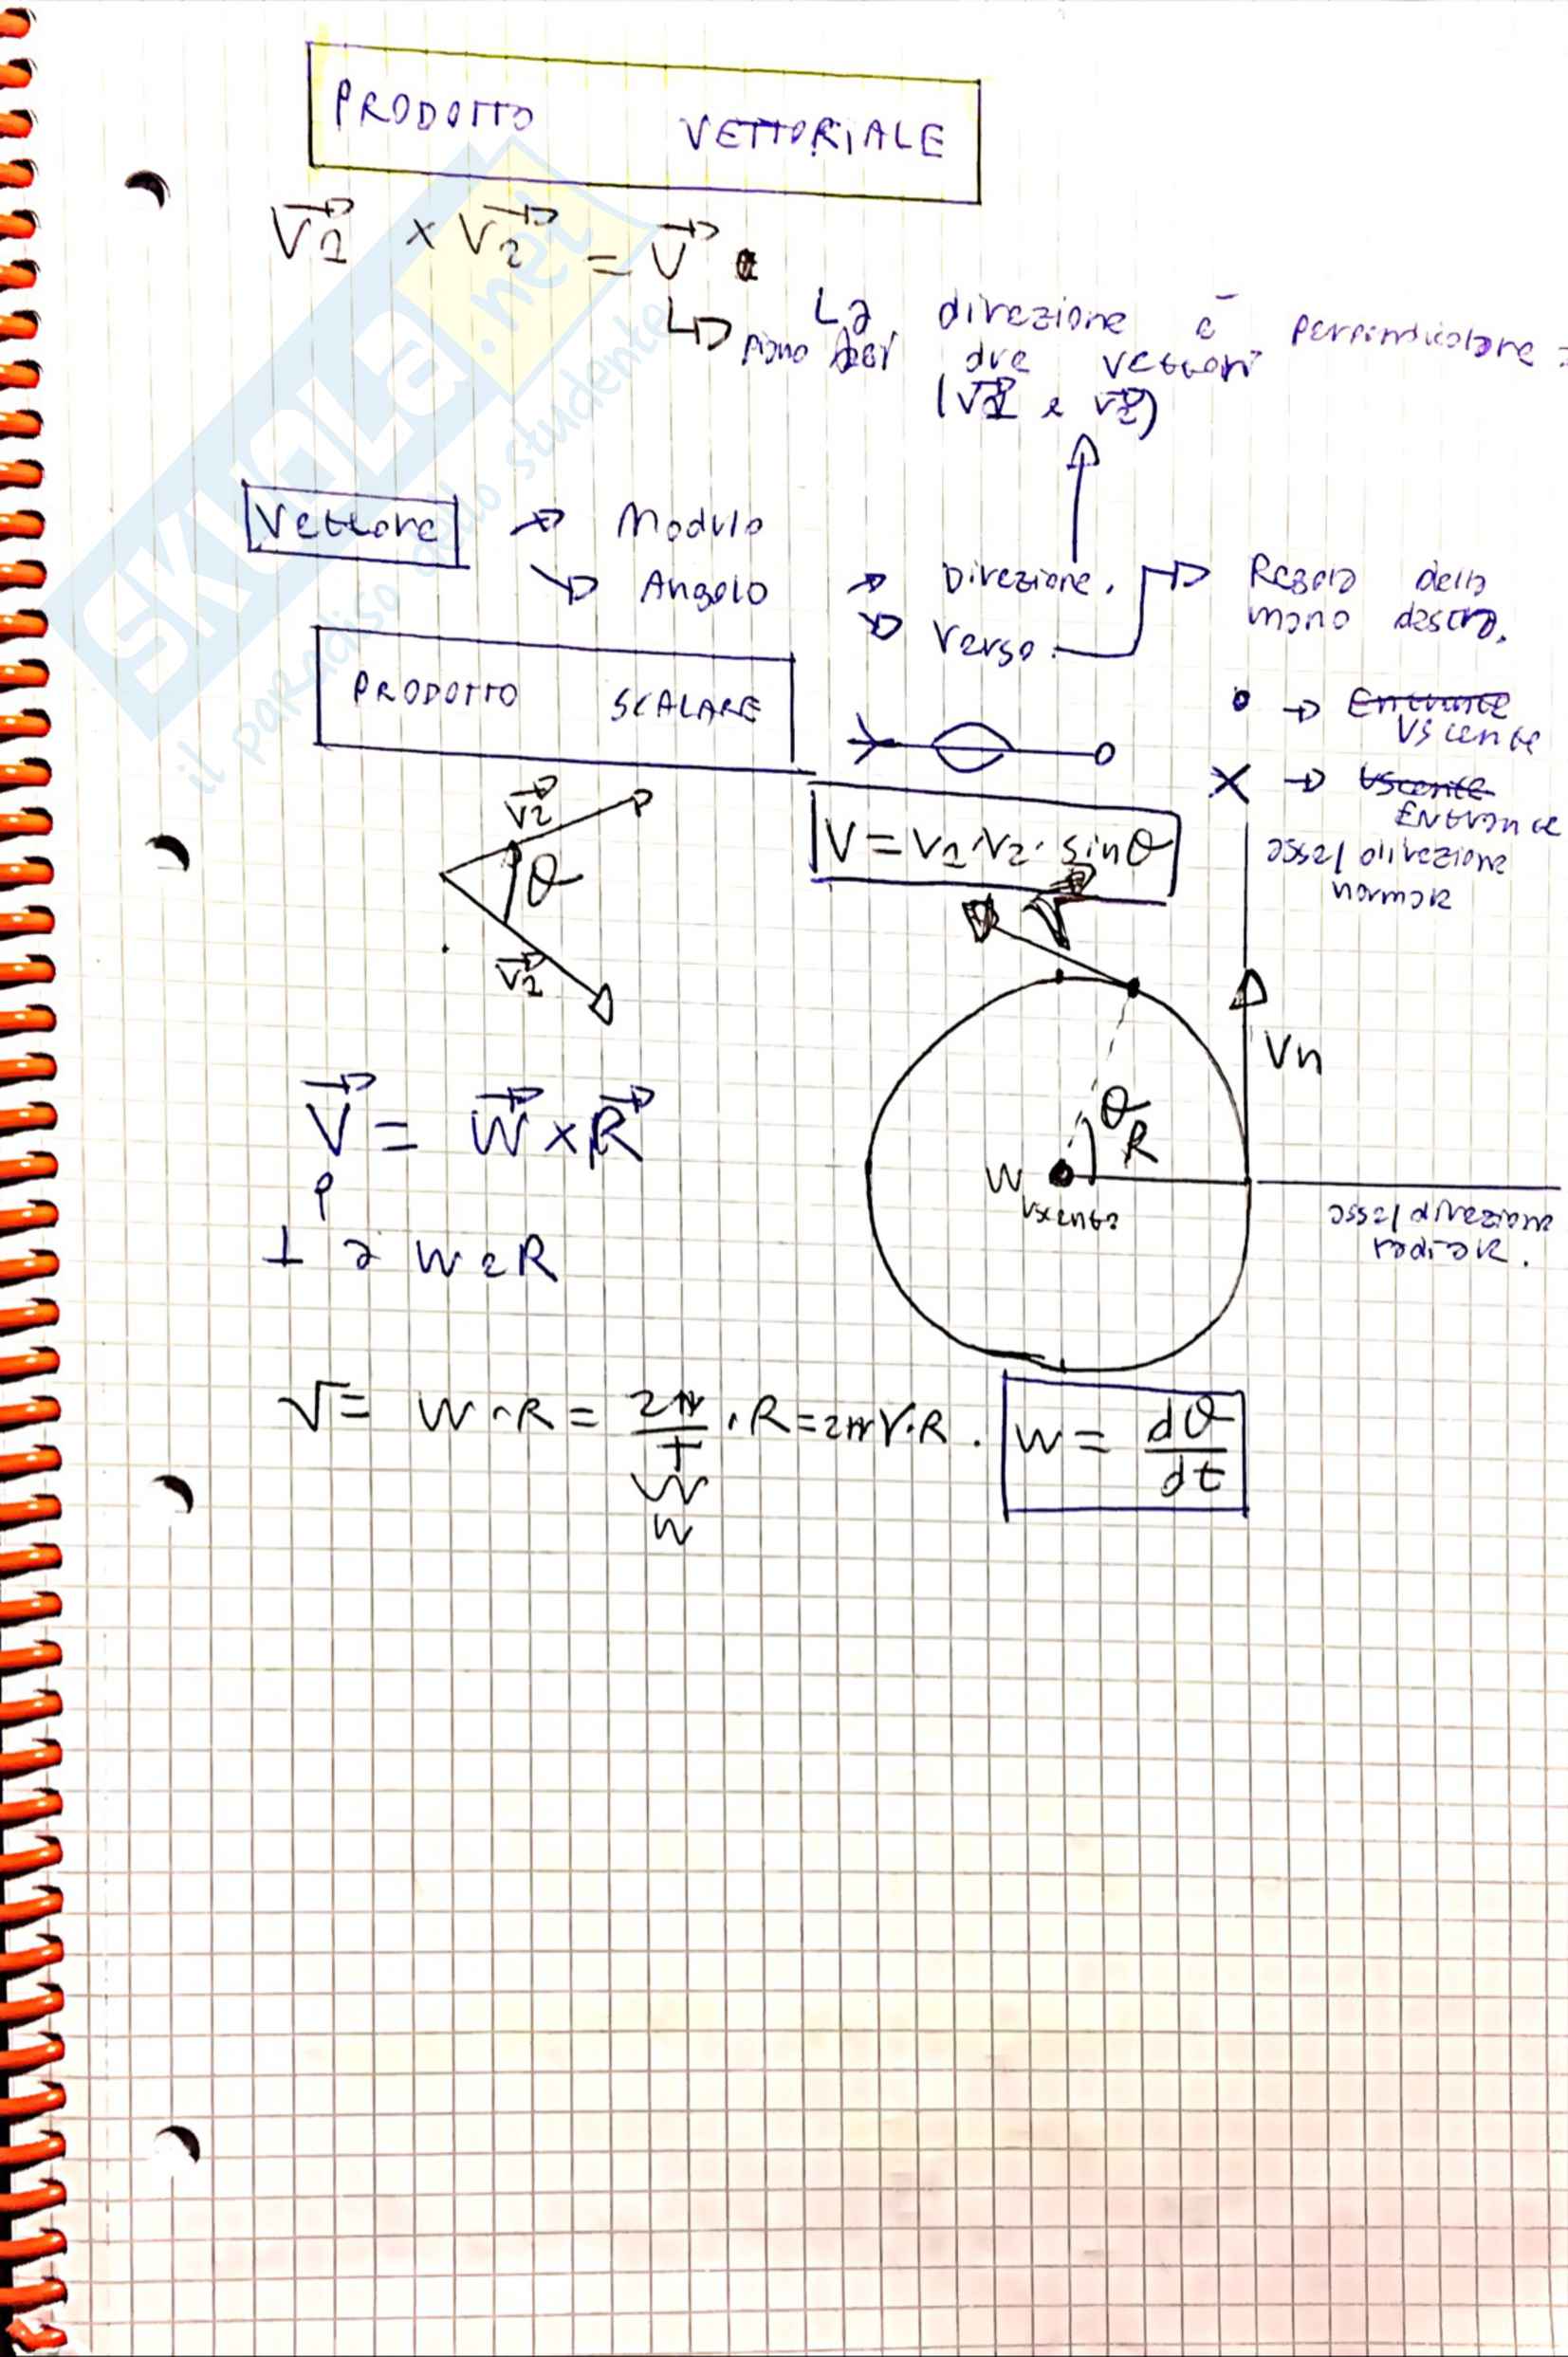 PRODOTTO VETTORIALE
V1 × V2 = V
La direzione è perpendicolare
piano dei due vettori
(V1 e V2)
Vettore → Modulo
→ Angolo → Direzione.
→ Verso. → Regola della
mano destra.
PRODOTTO SCALARE
• → Entrante
Uscente
X → Uscente
Entrante
V = V1 · V2 · sinθ
asse/direzione
normale
V2
θ
V1
V
Vn
θ
R
W
uscente
asse/direzione
radiale.
V = W × R
⊥ a W e R
V = W · R = 2π/T · R = 2πν · R.
W
W = dθ/dt
SKUOLA.net
il paradiso dello studente